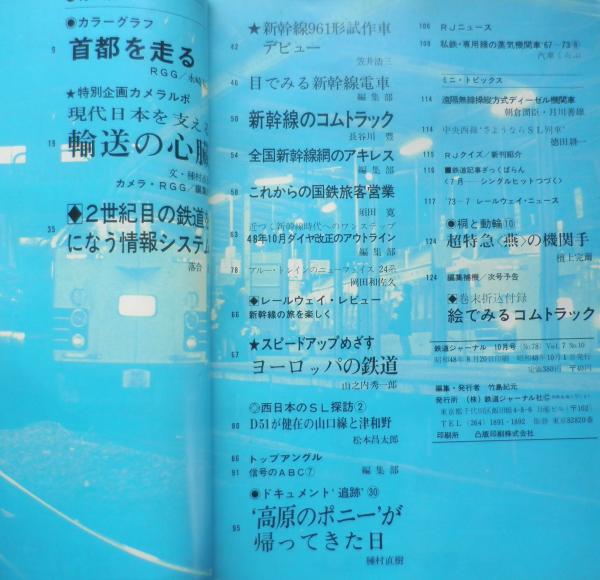 ●カラーグラフ
9 首都を走る
RGG/
★特別企画カメラルポ
現代日本を支える
19 輸送の心臓
文・種村直
カメラ・RGG/編集
35 ◆2世紀目の鉄道を
になう情報システム
落合
★新幹線961形試作車
42 デビュー
笠井浩三
46 目でみる新幹線電車
編集部
50 新幹線のコムトラック
長谷川 豊
54 全国新幹線網のアキレス
編集部
58 これからの国鉄旅客営業
須田 寛
近づく新幹線時代へのワンステップ
63 48年10月ダイヤ改正のアウトライン
編集部
78 ブルー・トレインのニューフェイス 24系
岡田和佐久
◆レールウェイ・レビュー
66 新幹線の旅を楽しく
67 ★スピードアップめざす
ヨーロッパの鉄道
山之内秀一郎
◎西日本のSL探訪②
80 D51が健在の山口線と津和野
松本昌太郎
86 トップアングル
91 信号のABC⑦ 編集部
●ドキュメント‘追跡’㉚
95 ‘高原のポニー’が
帰ってきた日
種村直樹
106 RJニュース
108 私鉄・専用線の蒸気機関車'67―73⑧
汽車くらぶ
ミニ・トピックス
114 遠隔無線操縦方式ディーゼル機関車
朝倉潤臣・月川善雄
114 中央西線“さようならSL列車”
徳田耕一
115 RJクイズ/新刊紹介
116 ■鉄道記事ざっくばらん
〈7月――シングルヒットつづく〉
117 '73-7 レールウェイ・ニュース
●桐と動輪⑩
124 超特急〈燕〉の機関手
檀上完爾
124 編集補機/次号予告
◆巻末折込付録
絵でみるコムトラック
鉄道ジャーナル 10月号 (No.78) Vol.7 No.10
昭和48年8月20日印刷 昭和48年10月1日発行
定価380円 〒40円
編集・発行者 竹島紀元
発行所 (株)鉄道ジャーナル社©
東京都千代田区飯田橋4-8-6 日産ビル (〒102)
TEL (264) 1891・1892 振替 東京82820番
印刷所 凸版印刷株式会社